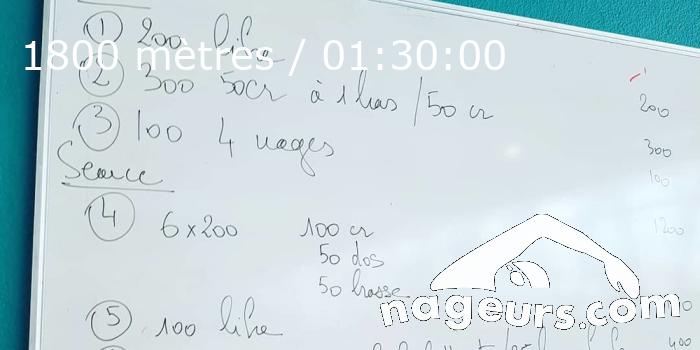 ① 200 libre
1800 mètres / 01:30:00
② 300 50cr à 1 bras / 50 cr
200
③ 100 4 nages
300
100
Séance
④ 6x200 100 cr
1200
50 dos
50 brasse
nageurs.com
⑤ 100 libre
400